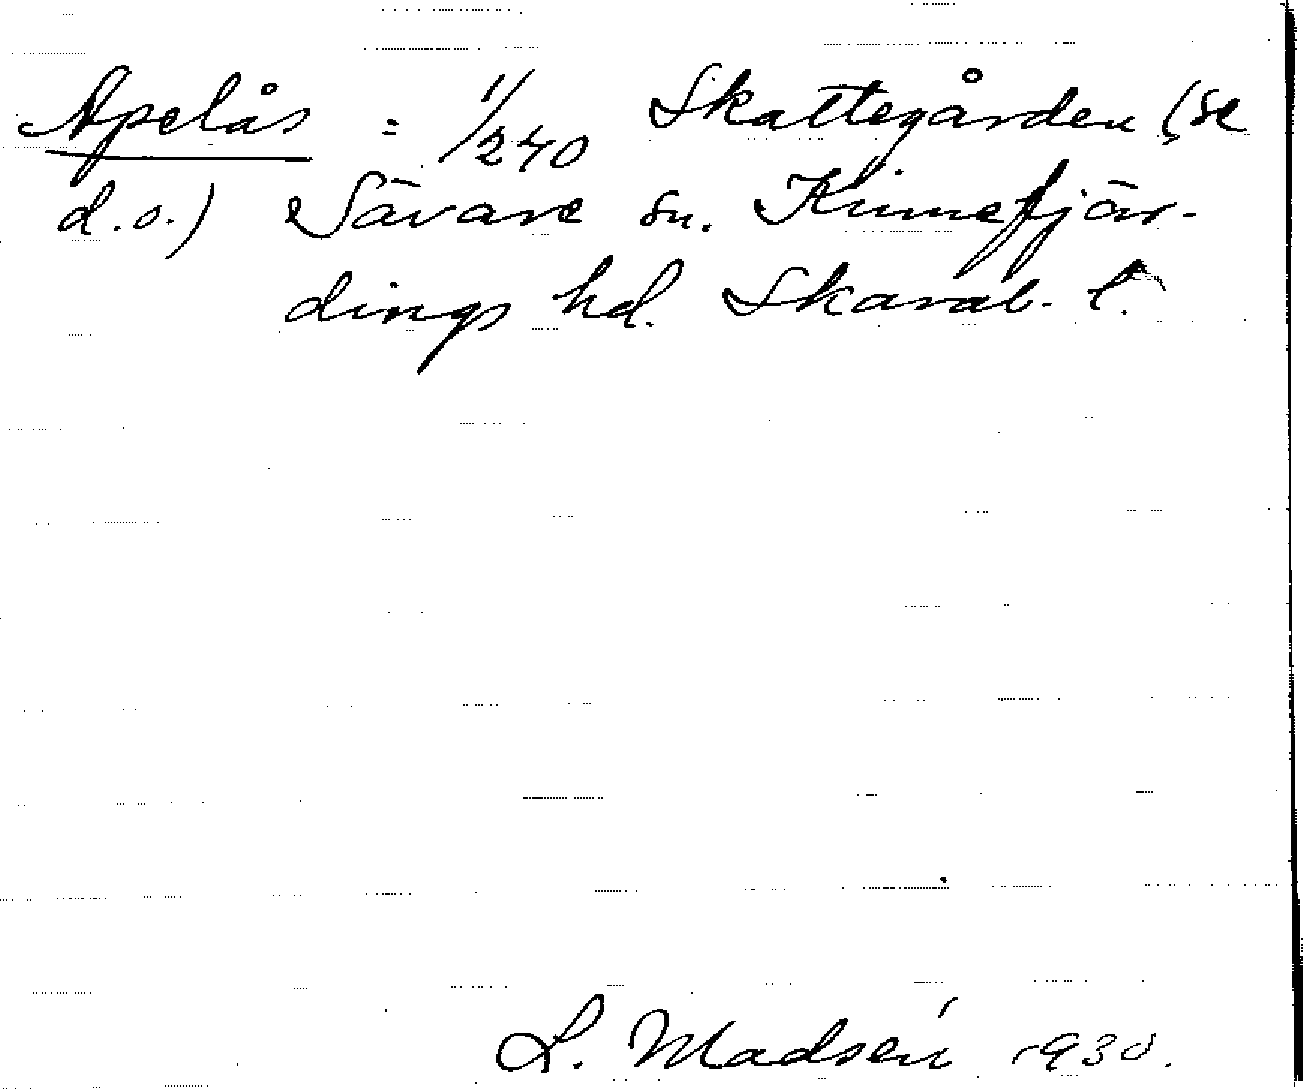 Apelås = 1/240 Skattegården (se
d.o.) Sävare sn. Kinnefjär-
dings hd. Skarab. l.
L. Madsén 1930.